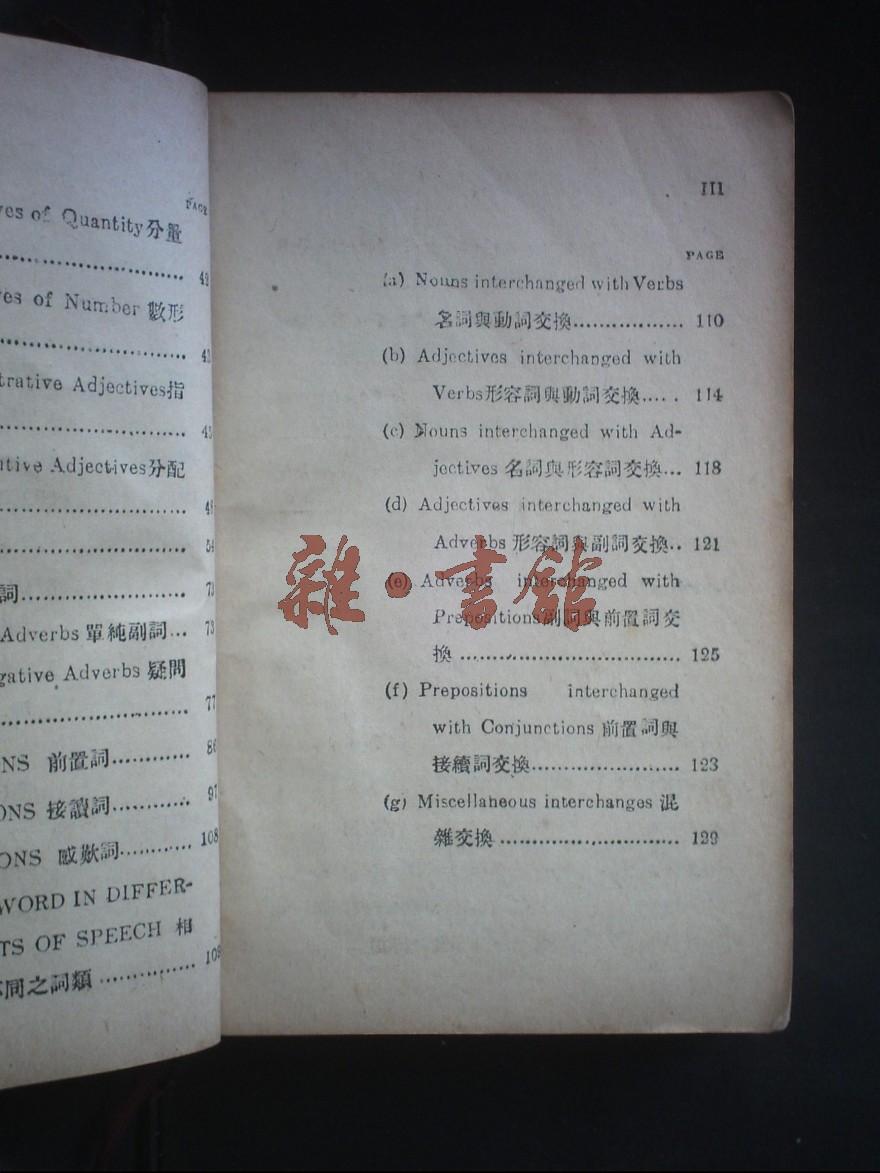 PAGE
ves of Quantity分量
................... 42
ves of Number 數形
...................
trative Adjectives指
...................
utive Adjectives分配
...................
................... 54
詞................... 73
Adverbs 單純副詞... 73
gative Adverbs 疑問
................... 77
NS 前置詞............ 86
ONS 接讀詞............ 97
ONS 感歎詞............ 108
WORD IN DIFFER-
TS OF SPEECH 相
同之詞類 ............... 108
III
PAGE
(a) Nouns interchanged with Verbs
名詞與動詞交換................. 110
(b) Adjectives interchanged with
Verbs形容詞與動詞交換..... 114
(c) Nouns interchanged with Ad-
jectives 名詞與形容詞交換... 118
(d) Adjectives interchanged with
Adverbs 形容詞與副詞交換.. 121
(e) Adverbs interchanged with
Prepositions副詞與前置詞交
換 .................................. 125
(f) Prepositions interchanged
with Conjunctions 前置詞與
接續詞交換....................... 123
(g) Miscellaneous interchanges 混
雜交換 ............................ 129
雜·書館